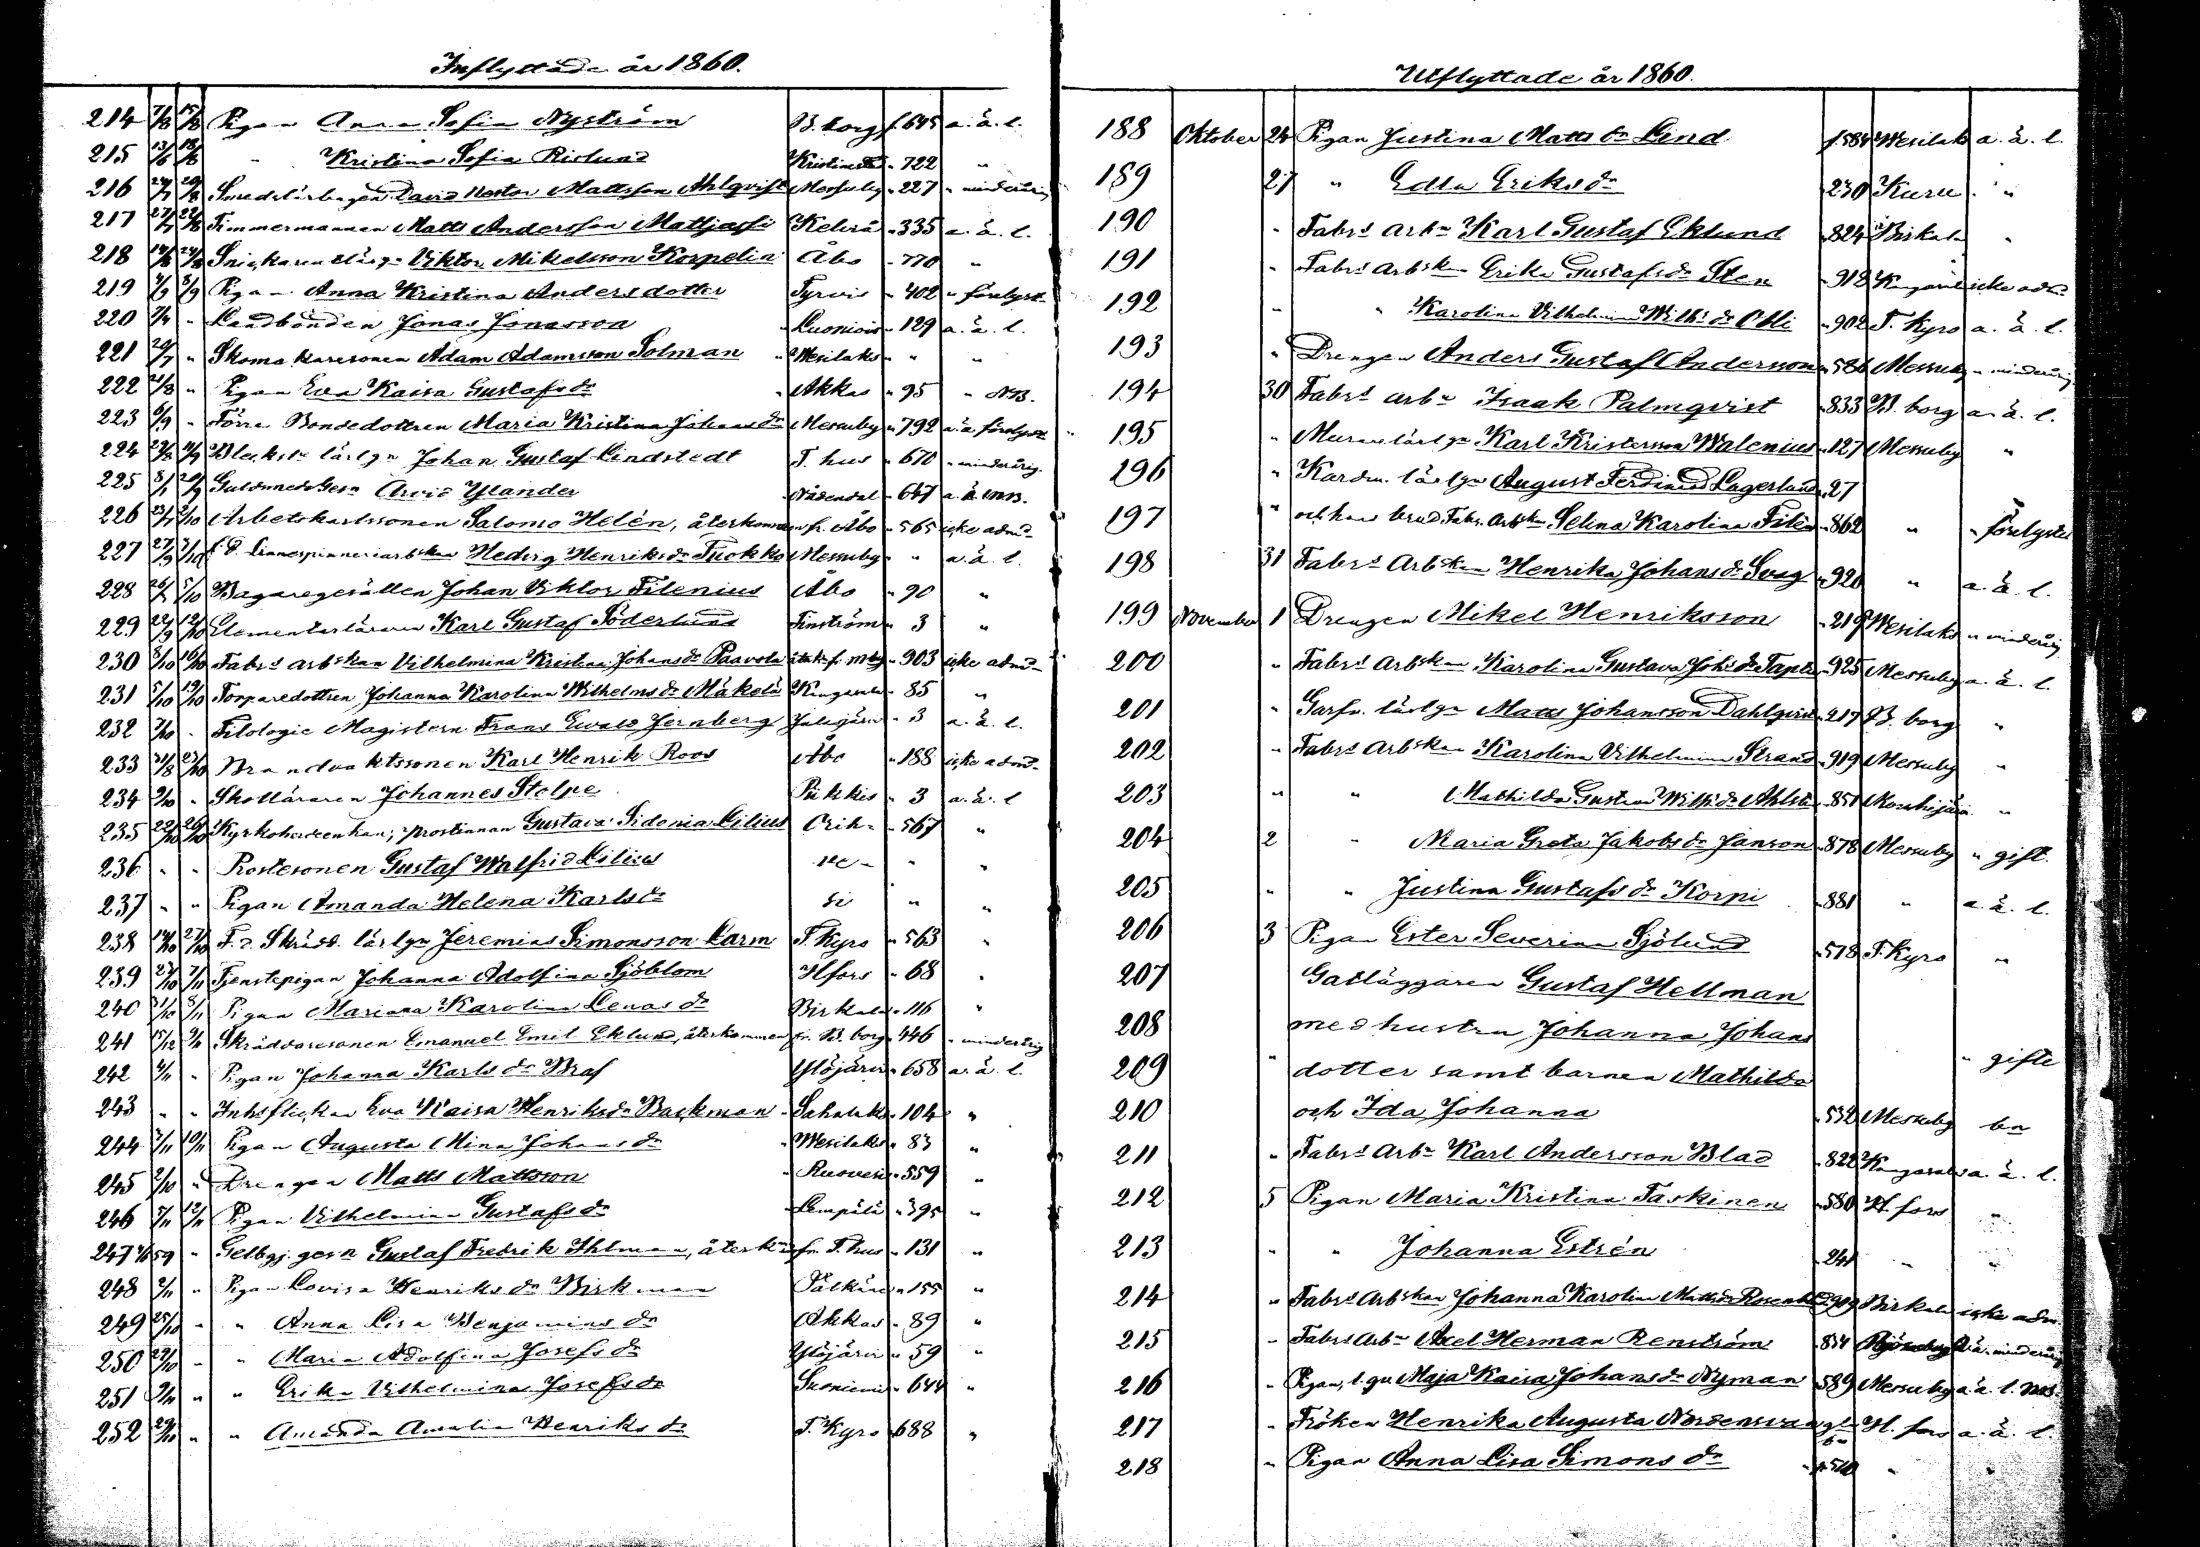 Inflyttade år 1860.
214 7/8 15/8 Pigan Anna Sofia Nyström B. borg f. 645 a. ä. l.
215 13/8 18/8 " Kristina Sofia Rislund Kristinestad " 722 "
216 24/7 20/8 Smedslärlingen David Nestor Mattsson Ahlqvist Messuby " 227 " minderårig
217 27/7 22/8 Timmermannen Matts Andersson Mattjassi Kelviå " 335 a. ä. l.
218 14/8 24/8 Snickarelärlgn Viktor Mikelsson Korpelin Åbo " 770 "
219 3/9 5/9 Pigan Anna Kristina Andersdotter Tyrvis " 402 " förelyst
220 " Landbonden Jonas Jonasson Luoniois " 129 a. ä. l.
221 20/7 " Skomakaresonen Adam Adamsson Solman " Wesilaks " " "
222 21/8 " Pigan Eva Kaisa Gustafsdr " Akkas " 95 " NB.
223 6/9 " Förre Bondedottren Maria Kristina Johansdr Messuby " 792 a. ä. förelyst
224 Blecksl. lärlgn Johan Gustaf Lindstedt T. hus " 670 " minderårig
225 Guldsmedsgesn Arvid Ylander Nådendal " 647 a. ä. l. NB.
226 Arbetskarlssonen Salomo Helén, återkommen fr. Åbo " 565 icke admd
227 27/9 3/10 f. d. Linnespinneriarbskan Hedvig Henriksdr Tuokko Messuby " " a. ä. l.
228 5/10 Bagaregesällen Johan Viktor Filenius Åbo " 90 "
229 22/9 12/10 Elementarläraren Karl Gustaf Söderlund Finström " 3 "
230 8/10 16/10 Fabrs arbskan Vilhelmina Kristina Johansdr Paavola återk. fr. Mby " 903 icke admd
231 5/10 19/10 Torparedottren Johanna Karolina Wilhelmsdr Mäkelä Kangasala " 85 "
232 " Filologie Magistern Frans Ewald Jernberg Jalasjärvi " 3 a. ä. l.
233 31/8 Brandvaktssonen Karl Henrik Roos Åbo " 188 icke admd
234 " Skolläraren Johannes Stolpe Pikkis " 3 a. ä. l
235 22/10 26/10 Kyrkoherdeenkan, prostinnan Gustava Sidonia Lilius Orih. " 567 "
236 " " Prostesonen Gustaf Walfrid Lilius ve- " "
237 " " Pigan Amanda Helena Karlsdr si " "
238 27/10 F. d. Skrädd. lärlgn Jeremias Simonsson Larm T. Kyro " 563 "
239 27/10 7/11 Tjenstepigan Johanna Adolfina Sjöblom Hfors " 68 "
240 31/10 8/11 Pigan Mariana Karolina Lenasdr Birkala " 116 "
241 15/12 9/11 Skräddaresonen Emanuel Emil Eklund, återkommen fr. B. borg " 446 " minderårig
242 " Pigan Johanna Karlsdr Braf Ylöjärvi " 658 a. ä. l.
243 " " Inhsflickan Eva Kaisa Henriksdr Backman Sahalaks " 104 "
244 10/11 Pigan Augusta Mina Johansdr " Wesilaks " 83 "
245 2/10 " Drengen Matts Mattsson " Ruovesi " 559 "
246 12/11 Pigan Vilhelmina Gustafsdr " Lempälä " 395 "
247 59 " Gelbgj. gesn Gustaf Fredrik Ihlman, återkn fr. T. hus " 131 "
248 2/11 " Pigan Lovisa Henriksdr Birkman Pälkäne " 155 "
249 25/10 " " Anna Lisa Benjaminsdr Akkas " 89 "
250 29/10 " " Maria Adolfina Josefsdr Ylöjärvi " 59 "
251 " " Erika Vilhelmina Josefsdr Suoniemi " 644 "
252 29/10 " " Amanda Amalia Henriksdr T. Kyro " 688 "
Utflyttade år 1860.
188 Oktober 24 Pigan Justina Mattsdr Lind f. 584 Wesilaks a. ä. l.
189 27 " Edla Eriksdr 230 Kuru "
190 " Fabrs arbn Karl Gustaf Eklund " 824 Birkala "
191 " Fabrs arbskn Erika Gustafsdr Sten " 918 Kangasala icke admd
192 " " Karolina Vilhelmina Wilhsdr Olli " 902 T. Kyro a. ä. l.
193 " Drengen Anders Gustaf Andersson " 586 Messuby " minderårig
194 30 Fabrs arbn Isaak Palmqvist " 833 B. borg a. ä. l.
195 " Murarelärlgn Karl Kristersson Walenius " 127 Messuby "
196 " Kardm. lärlgn August Ferdinand Lagerlund " 27
197 " och hans brud Fabrs arbskn Selina Karolina Filén " 862 " " förelyste
198 31 Fabrs Arbskan Henrika Johansdr Svag " 920 " a. ä. l.
199 November 1 Drengen Mikel Henriksson " 219 Wesilaks " minderårig
200 " Fabrs Arbskan Karolina Gustava Johsdr Tapla " 925 Messuby a. ä. l.
201 " Garfv. lärlgn Matts Johansson Dahlqvist " 217 B. borg "
202 " Fabrs Arbskan Karolina Vilhelmina Strand " 919 Messuby "
203 " " Mathilda Gustava Wilhsdr Ahlstn " 851 Mouhijärvi "
204 2 " Maria Greta Jakobsdr Janson " 878 Messuby " gift.
205 " " Justina Gustafsdr Korpi " 881 " a. ä. l.
206 3 Pigan Ester Severina Sjölund " 578 T. Kyro "
207 Gatläggaren Gustaf Hellman
208 med hustru Johanna Johans
209 " dotter samt barnen Mathilda " gifte
210 och Ida Johanna " 532 Messuby bn
211 " Fabrs Arbn Karl Andersson Blad " 822 Kangasala a. ä. l.
212 5 Pigan Maria Kristina Taskinen " 580 H. fors "
213 " " Johanna Estrén " 241 " "
214 " Fabrs Arbskan Johanna Karolina Mattsdr " 909 Birkala icke adm.
215 " Fabrs Arbn Axel Herman Renström " 834 Björneborg a. ä. minderårig
216 " Pigan, l. qu Maja Kaisa Johansdr Nyman " 589 Messuby a. ä. l. NB.
217 " Fröken Henrika Augusta Nordensvan H. fors a. ä. l.
218 " Pigan Anna Lisa Simonsdr " "